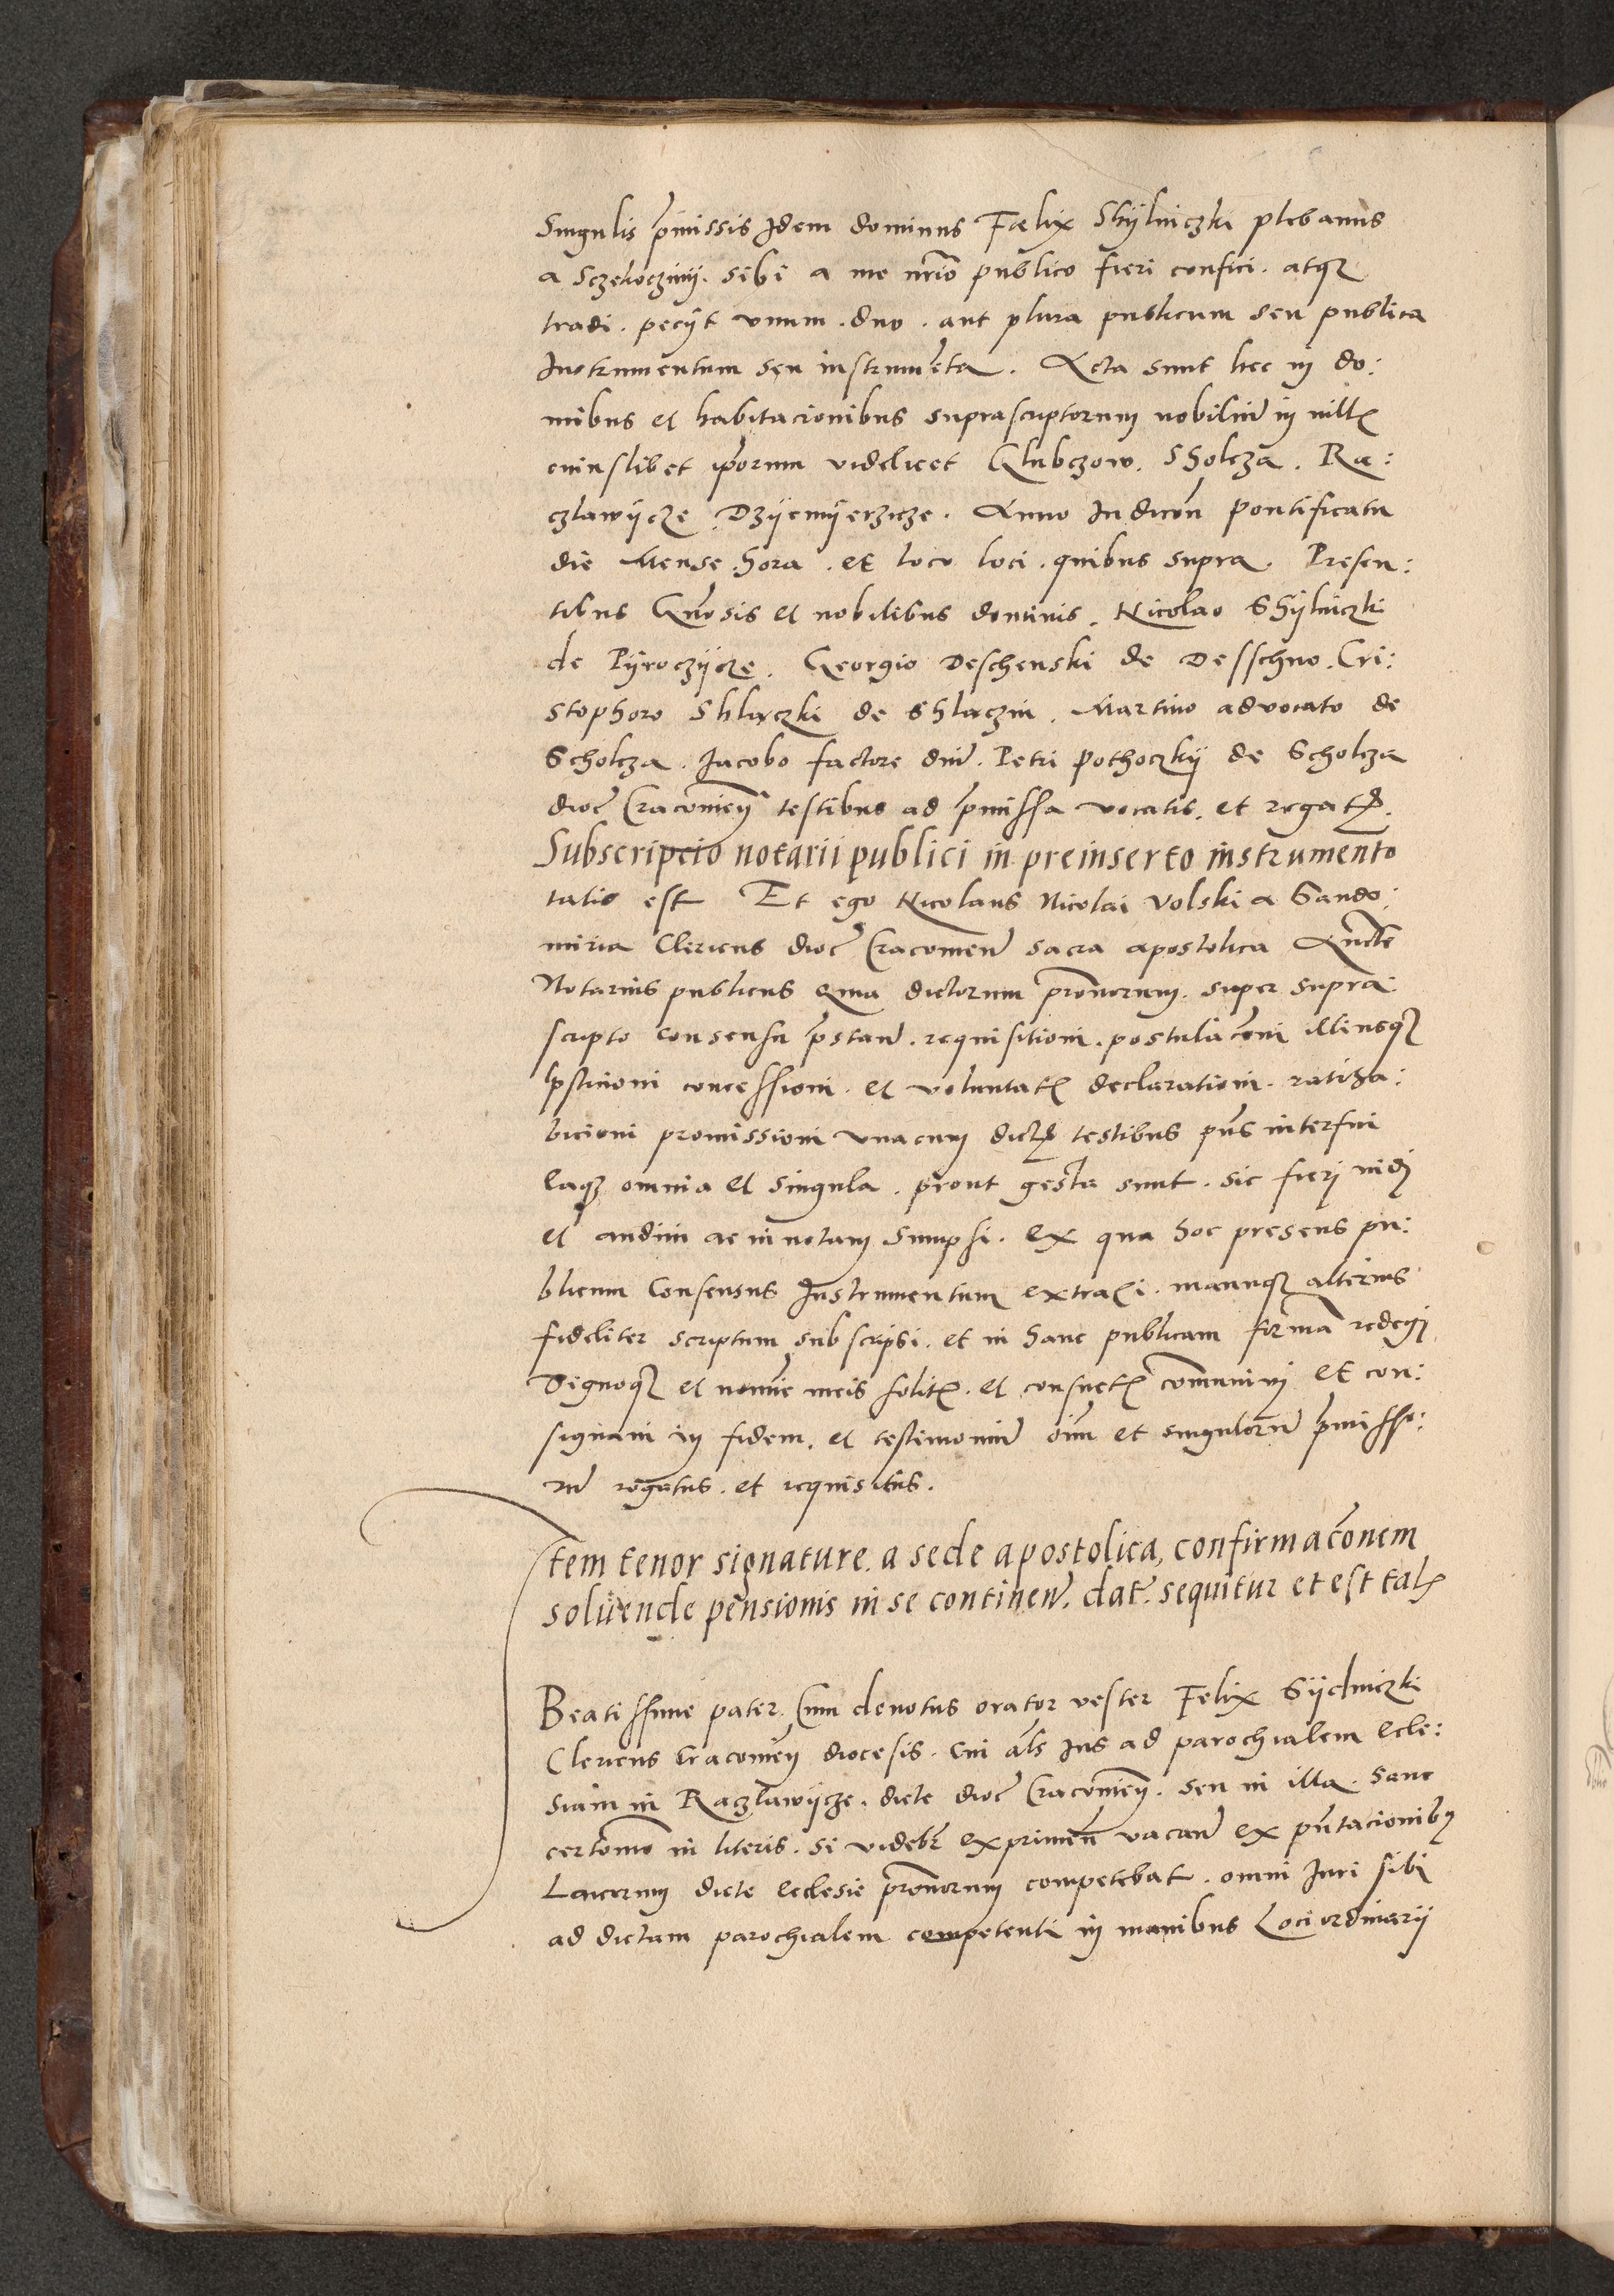 Singulis p̄missis Idem dominus Fœlix Shÿlniczki plebanus
a Sczekoczinÿ. sibi a me nr̄io publico fieri confici. atqȝ
tradi. peciÿt vnum. duo. aut plura publicum seu publica
Instrumentum seu instrumēta. Acta sunt hec in do:
mibus et habitacionibus suprascriptorum nobiliū in villꝭ
cuiuslibet ip̄orum videlicet Glubczow. Sholcza. Ra:
czlawÿcze Dzÿemÿerzicze. Anno Indicōn pontificatu
die Mense. hora. et loco loci. quibus supra. Presen:
tibus Gn̄osis et nobilibus dominis. Nicolao Shÿlniczki
de Pÿroczÿcze. Georgio Deschenski de Desschno. Cri:
stophoro Shlaczki de Shlaczin. Martino advocato de
Scholcza. Iacobo factore dnī. Petri Pothoczkÿ de Scholcza
dioc̄ Cracovieñ testibus ad p̄missa vocatis. et rogatꝭ.
Subscripcio notarii publici in preinserto instrumento
talis est Et ego Nicolaus Nicolai Volski a Sando:
miria Clericus dioc̄ Cracovien̄ sacra apostolica Auct̄e
Notarius publicus Quia dictorum pr̄onorum. super supra:
scripto consensu p̄stan̄. requisitioni. postulac̄oni illiusqȝ
p̄sticioni concessioni. et voluntatꝭ declarationi. ratiha:
bicioni promissioni vnacum dictꝭ testibus pn̄s interfui
eaqȝ omnia et singula. prout gesta sunt. sic fieri vidi
et audivi ac in notam sumpsi. ex qua hoc presens pu:
blicum Consensus Instrumentum extraxi. manuqȝ alterius
fideliter scriptum subscripsi. et in hanc publicam formā redegi
Signoqȝ et nomīe meis solitꝭ. et consuetꝭ com̄univi et con:
signavi in fidem. et testimoniū oīm et singulorū p̄misso:
rū rogatus. et requisitus.
Item tenor signature. a sede apostolica, confirmac̄onem
solvende pensionis in se continen̄. dat̄. sequitur et est talꝭ
Beatissime pater. Cum devotus orator vester Felix Sÿelniczki
Clericus Cracovieñ diocesis. cui al̄s Ius ad parochialem Eccle:
siam in Raczlawÿcze. dicte dioc̄ Cracovieñ. seu in illa. sanc
certomo in literis. si videbꝭ exprimen̄ vacan̄ ex pn̄tacionibꝰ
Laicorum dicte ecclesie pr̄onorum competebat. omni Iuri sibi
ad dictam parochialem competenti in manibus Loci ordinarii